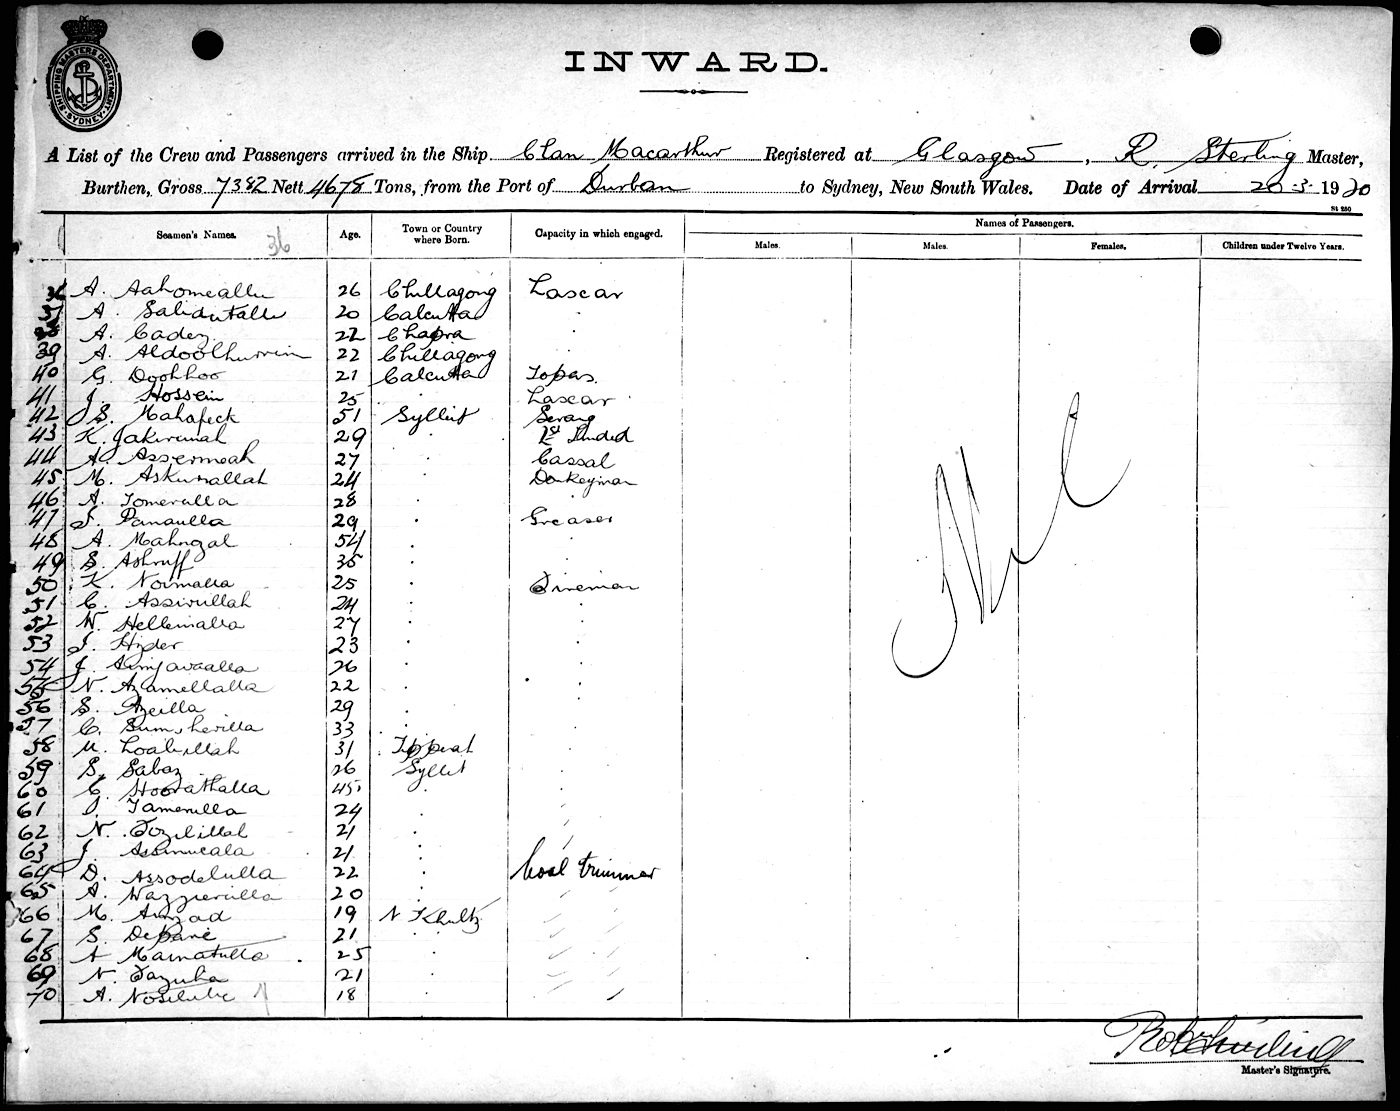 SHIPPING MASTERS DEPARTMENT
SYDNEY
INWARD.
A List of the Crew and Passengers arrived in the Ship Clan Macarthur Registered at Glasgow, R. Sterling Master,
Burthen, Gross 7382 Nett 4678 Tons, from the Port of Durban to Sydney, New South Wales. Date of Arrival 20-3-1920
St 250
Seamen's Names. Age. Town or Country where Born. Capacity in which engaged. Names of Passengers.
Males. Males. Females. Children under Twelve Years.
36
A. 26 Chillagong Lascar
A. 20 Calcutta
A. Cadez 22 Chapra
39 A. 22 Chillagong
40 G. Doohhoo 21 Calcutta Topas.
41 J. Hossein 25 Lascar
42 S. Mahafeck 51 Syllit Serang
43 K. Jakirumah 29 1st
44 A. Assermoah 27 Cassal
45 M. Askurallah 24 Donkeyman
46 A. Tomerulla 28
47 J. Panaulla 29 Greaser
48 A. Mahngal 54
49 S. Ashruff 35
50 K. Noimalla 25 Fireman
51 C. Assirullah 24
52 W. Hellemalla 27
53 J. Hyder 23
54 J. 26
55 N. Azamellalla 22
56 S. Azeilla 29
57 C. Sumsherilla 33
58 M. Loabillah 31 Tipperah
59 S. Sabaz 26 Syllet
60 C. Hoorathalla 45
61 J. Tamerulla 24
62 N. Tozilillah 21
63 J. 21
64 D. Assodelulla 22 Coal trimmer
65 A. Wazzierulla 20
66 M. Amzad 19 N Khultz
67 S. Depane 21
68 A Mamatulla 25
69 N. Tazuha 21
70 A. 18
Nil
Master's Signature.